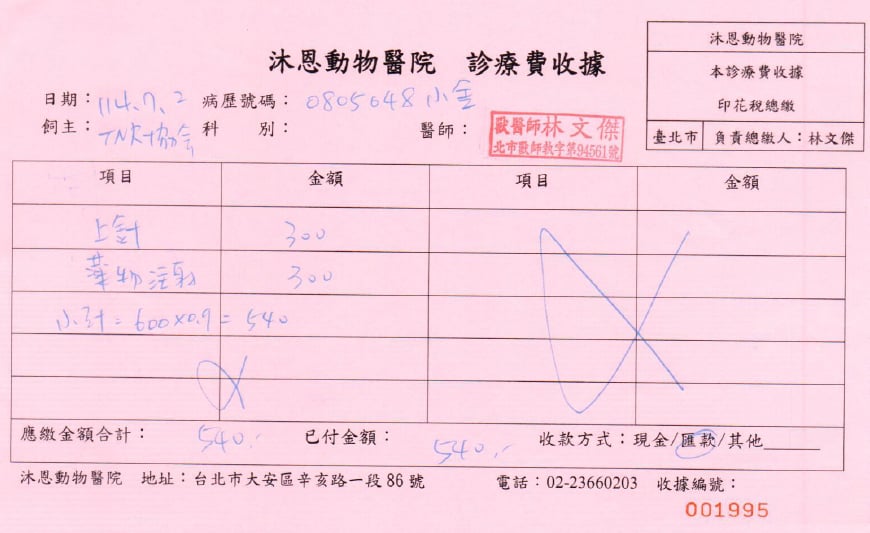 沐恩動物醫院 診療費收據
沐恩動物醫院
本診療費收據
印花稅總繳
臺北市 負責總繳人：林文傑
日期：114.7.2 病歷號碼：0805048 小金
飼主：TNR協會 科 別： 醫師：
獸醫師林文傑
北市獸師執字第94561號
項目 金額 項目 金額
上針 300
藥物注射 300
小計=600x0.9=540
應繳金額合計：540.- 已付金額：540.- 收款方式：現金/匯款/其他
沐恩動物醫院 地址：台北市大安區辛亥路一段86號 電話：02-23660203 收據編號：
001995